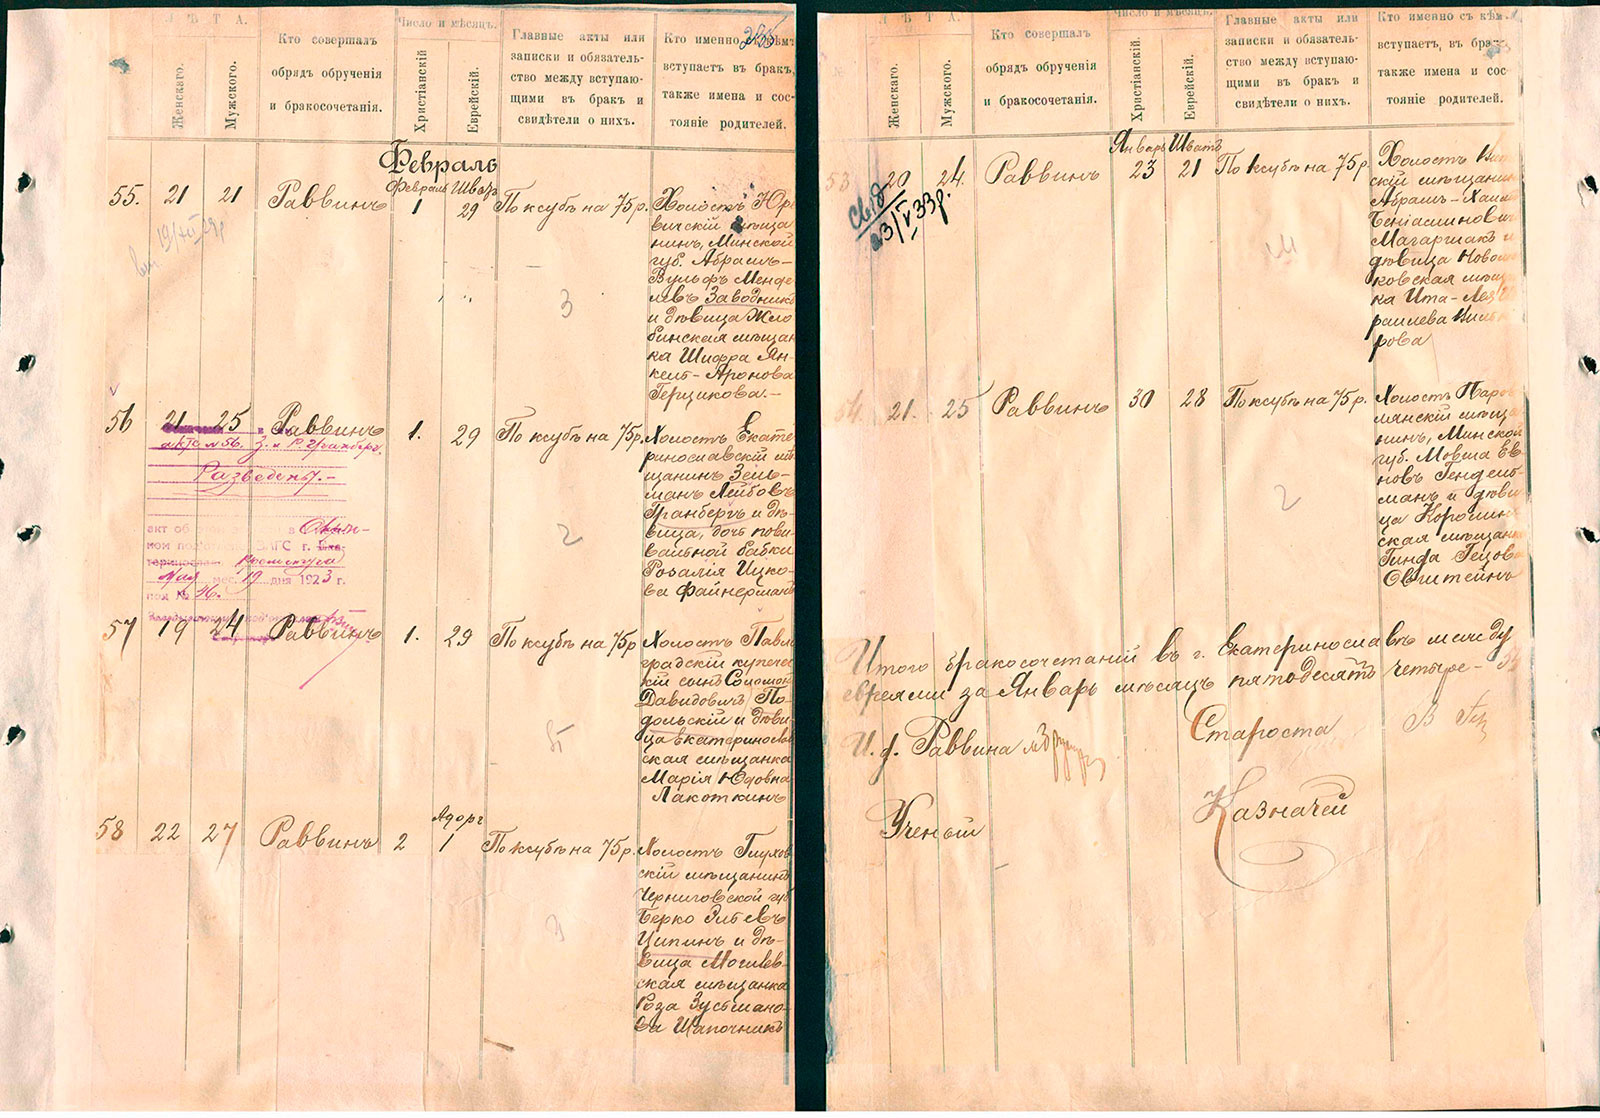 235
ЛѢТА.
Женскаго.
Мужского.
Кто совершалъ
обрядъ обрученія
и бракосочетанія.
Число и мѣсяцъ.
Христіанскій
Еврейскій.
Главные акты или
записки и обязатель-
ство между вступаю-
щими въ бракъ и
свидѣтели о нихъ.
Кто именно съ кѣмъ
вступаетъ въ бракъ,
также имена и сос-
тояніе родителей.
Февраль
Февраль Шватъ
55. 21 21 Раввинъ 1 29 По ксубѣ на 75 р.
Холостъ Юр-
вичскій мѣща-
нинъ, Минской
губ. Абрамъ-
Вульфъ Менде-
левъ Заводникъ
и дѣвица Жло-
бинская мѣщан-
ка Шифра Ян-
кель-Аронова
Герцикова.-
3
56 21 25 Раввинъ 1. 29 По ксубѣ на 75р.
акта №56. З. и Р. Гранбергъ
Разведены.-
акт об
ЗАГС г.
Кременчуга
мая мес. 19 дня 1923 г.
под № 46.
Холостъ Екате-
ринославскій мѣ-
щанинъ Зель-
манъ Лейбовъ
Гранбергъ и дѣ-
вица, дочь пови-
вальной бабки
Розалія Ицко-
ва Файнерманъ
2
57 19 24 Раввинъ 1. 29 По ксубѣ на 75р
Холостъ Павло-
градскій купечес-
кій сынъ Соломонъ
Давидовичъ По-
дольскій и дѣви-
ца Екатеринослав-
ская мѣщанка
Марія Юдовна
Лакоткинъ
Адоръ
58 22 27 Раввинъ 2 1 По ксубѣ на 75р.
Холостъ Глухов-
скій мѣщанинъ
Черниговской губ
Берко Элье въ
Ципинъ и дѣ-
вица Могилев-
ская мѣщанка
Роза Зусьмано-
ва Шапочникъ
ЛѢТА.
Женскаго.
Мужского.
Кто совершалъ
обрядъ обрученія
и бракосочетанія.
Число и мѣсяцъ.
Христіанскій.
Еврейскій.
Главные акты или
записки и обязатель-
ство между вступаю-
щими въ бракъ и
свидѣтели о нихъ.
Кто именно съ кѣмъ
вступаетъ, въ бракъ
также имена и сос-
тояніе родителей.
Январь Шватъ
53. 20 24. Раввинъ 23 21 По ксубѣ на 75р.
свід
23/IV 33р.
Холостъ
скій мѣщанинъ
Абрамъ-Хаимъ
Беніаминовичъ
Магаршакъ и
дѣвица Новомос-
ковская мѣщан-
ка Ита-Лея Из-
раилева
рова
54. 21. 25 Раввинъ 30 28 По ксубѣ на 75р.
Холостъ Паро-
мянскій мѣща-
нинъ, Минской
губ. Мовша Ев-
новъ Гендель-
манъ и дѣви-
ца Коромин-
ская мѣщанка
Гинда Гецова
Овштейнъ
2
Итого бракосочетаній въ г. Екатеринославѣ между
евреями за Январь мѣсяцъ пятьдесятъ четыре - 54
И. ф. Раввина
Староста
Ученый
Казначей